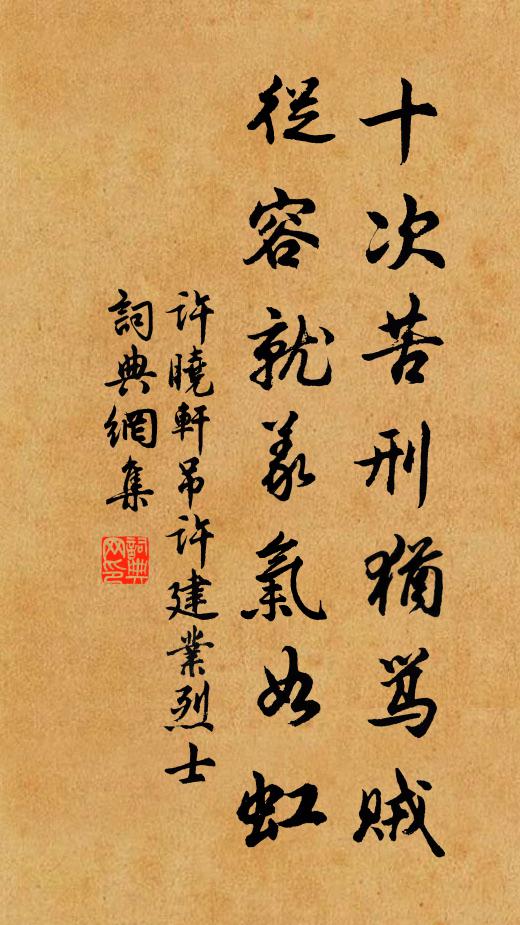 十次苦刑猶罵賊
從容就義氣如虹
許曉軒吊許建業烈士
詞典網集
詞典網印